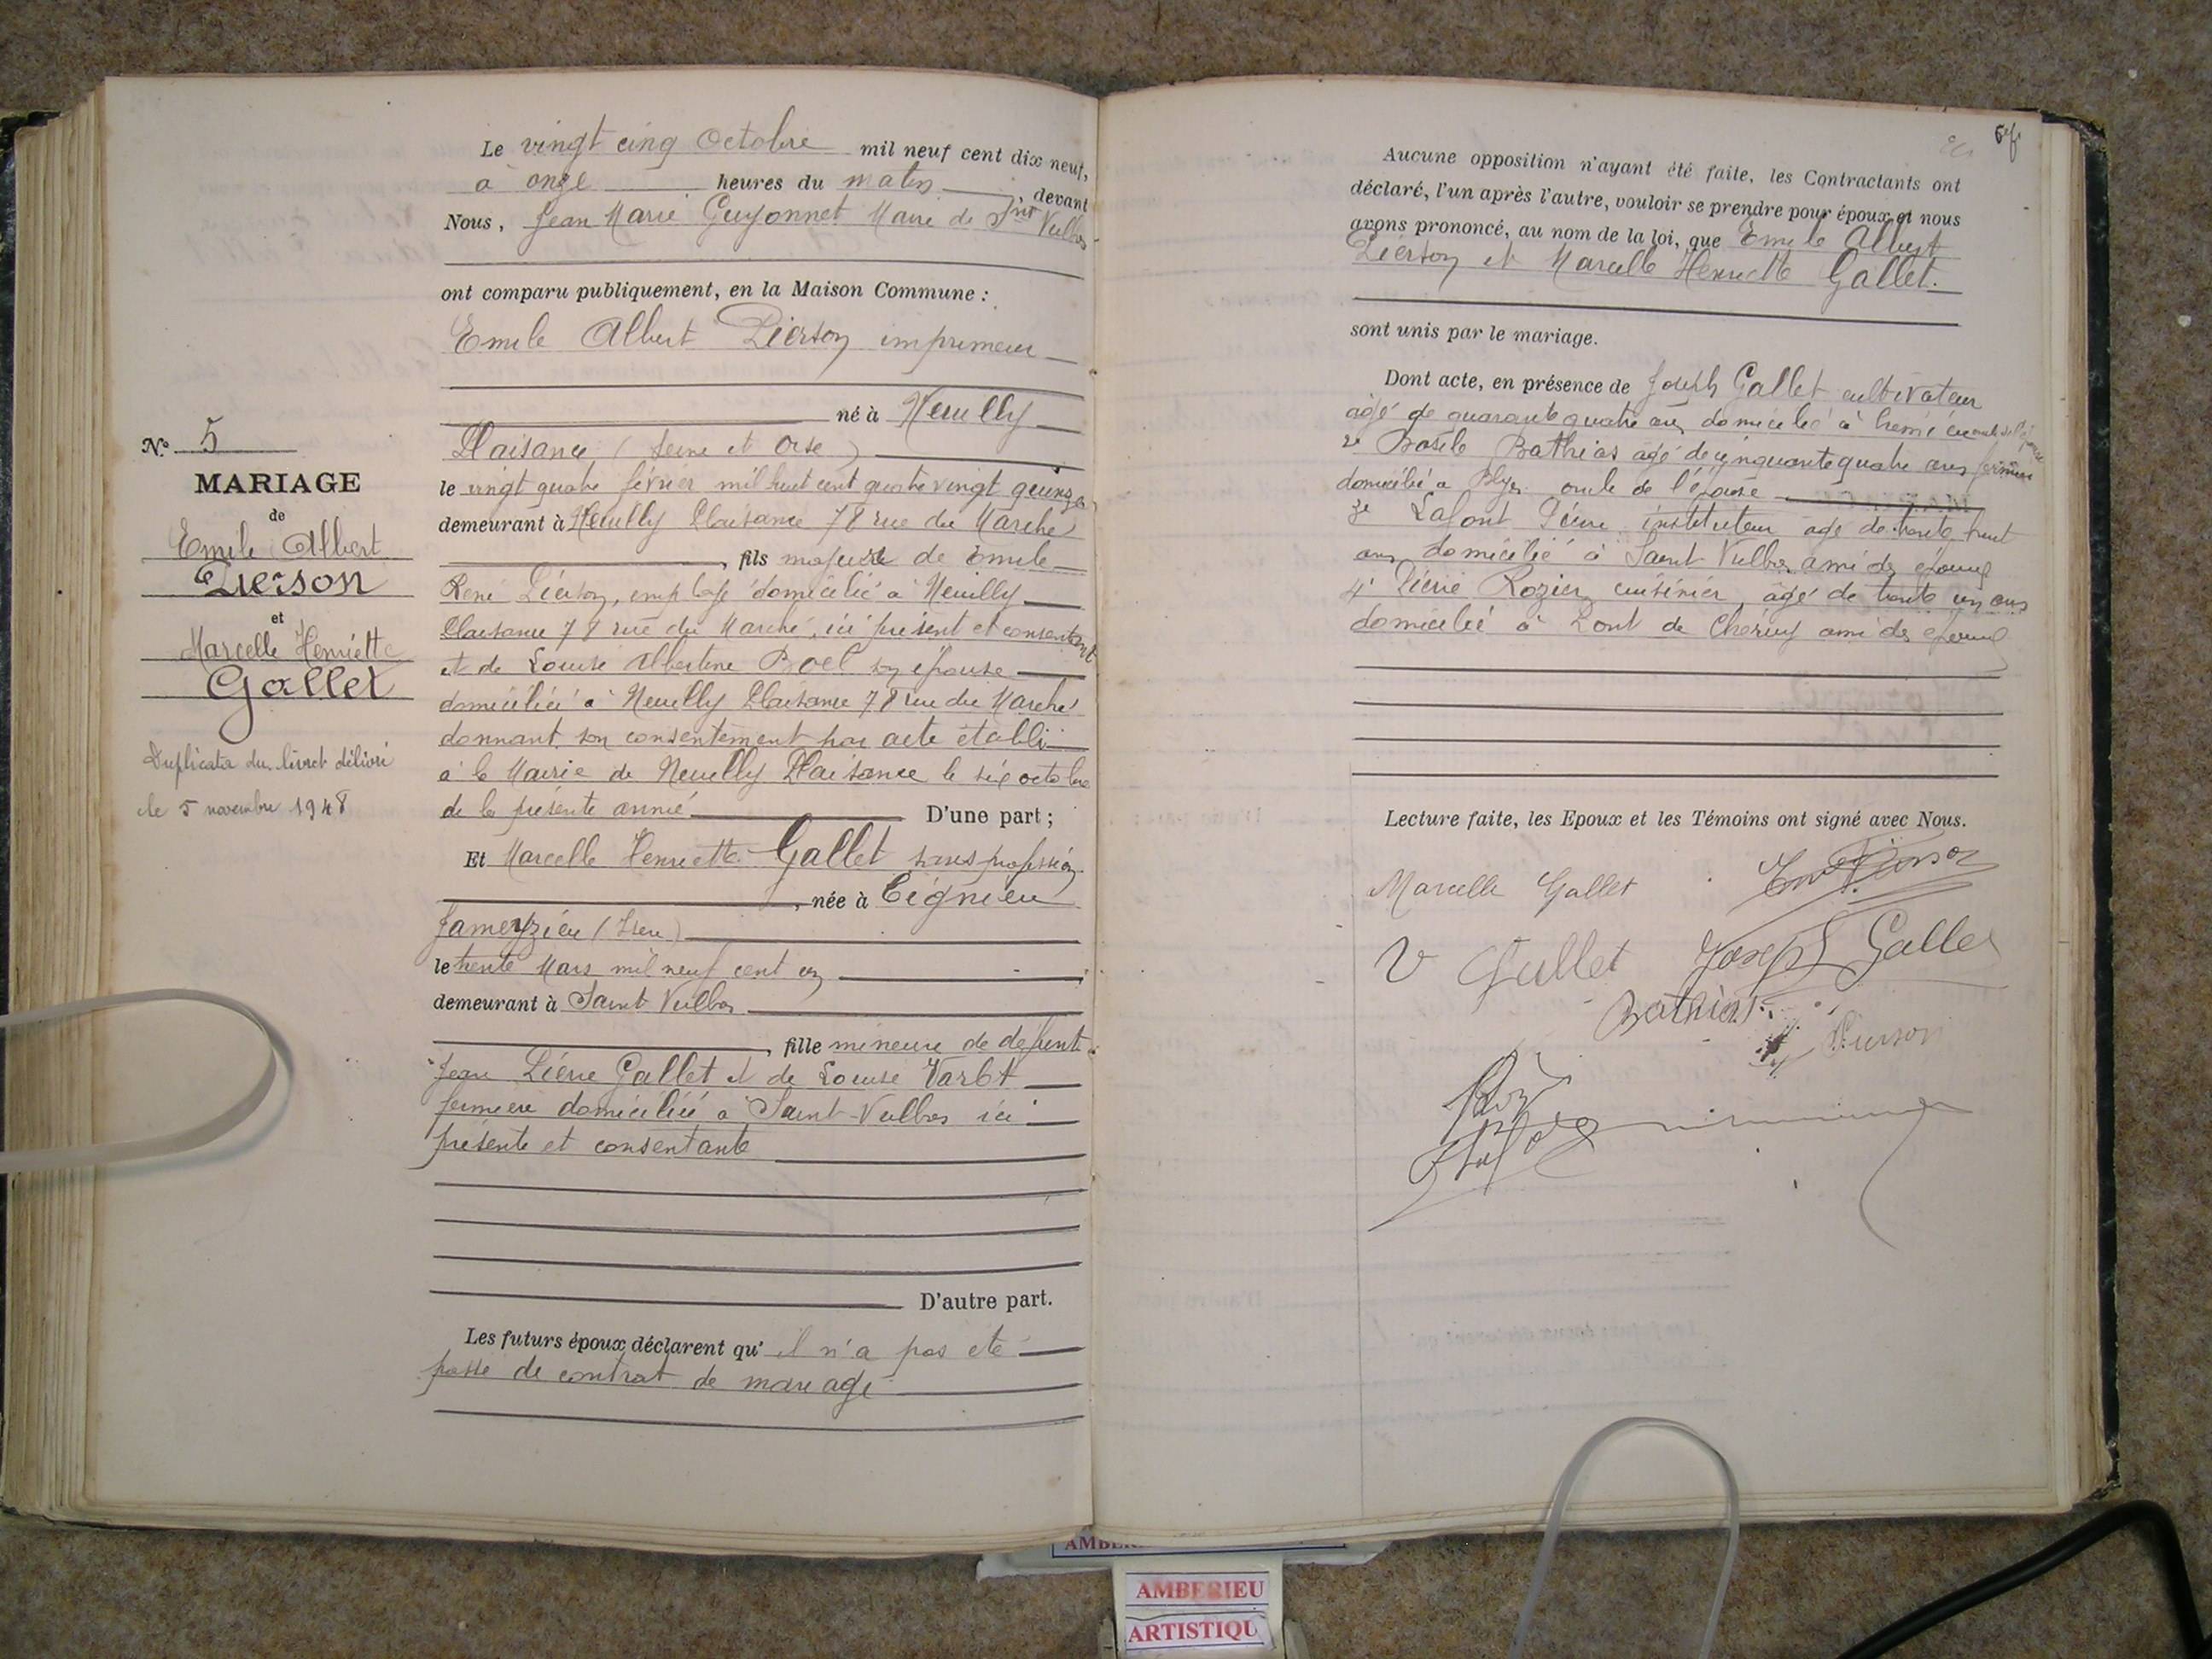 N° 5
MARIAGE
de
Emile Albert
Pierson
et
Marcelle Henriette
Gallet
Duplicata du livret délivré
le 5 novembre 1948
Le vingt cinq Octobre mil neuf cent dix neuf,
à onze heures du matin, devant
Nous, Jean Marie Guyonnet Maire de St Vulbas
ont comparu publiquement, en la Maison Commune :
Emile Albert Pierson imprimeur
né à Neuilly
Plaisance (Seine et Oise)
le vingt quatre février mil huit cent quatre vingt quinze
demeurant à Neuilly Plaisance 78 rue du Marché
, fils majeur de Emile
René Pierson, employé domicilié à Neuilly
Plaisance 78 rue du Marché, ici présent et consentant
et de Louise Albertine Boel son épouse
domiciliée à Neuilly Plaisance 78 rue du Marché
donnant son consentement par acte établi
à la Mairie de Neuilly Plaisance le six octobre
de la présente année D'une part ;
Et Marcelle Henriette Gallet sans profession
, née à Tignieu
Jameyzieu (Isère)
le trente Mars mil neuf cent un
demeurant à Saint Vulbas
, fille mineure de défunt
Jean Pierre Gallet et de Louise Varlet
fermière domiciliée à Saint-Vulbas ici
présente et consentante
D'autre part.
Les futurs époux déclarent qu'il n'a pas été
passé de contrat de mariage
Aucune opposition n'ayant été faite, les Contractants ont
déclaré, l'un après l'autre, vouloir se prendre pour époux et nous
avons prononcé, au nom de la loi, que Emile Albert
Pierson et Marcelle Henriette Gallet.
sont unis par le mariage.
Dont acte, en présence de Joseph Gallet cultivateur
âgé de quarante quatre ans domicilié à
2e Basile Bathias âgé de cinquante quatre ans fermier
domicilié à Blyes oncle de l'épouse
3e Lafont Pierre instituteur âgé de trente huit
ans domicilié à Saint-Vulbas ami des époux
4e Pierre Rozier cuisinier âgé de trente un ans
domicilié à Pont de Chéruy ami des époux
Lecture faite, les Epoux et les Témoins ont signé avec Nous.
Marcelle Gallet Em Pierson
V Gallet Joseph Gallet
Bathias
Pierson
AMBERIEU
ARTISTIQU